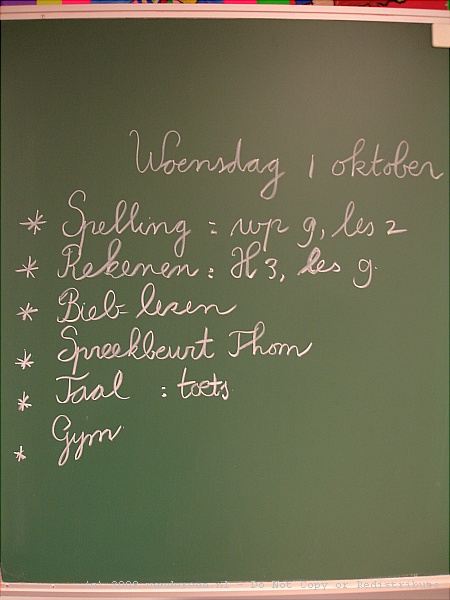 Woensdag 1 oktober
* Spelling : wp 9, les 2
* Rekenen : H3, les 9.
* Bieb-lezen
* Spreekbeurt Thom
* Taal : toets
* Gym
Do Not Copy or Redistribute